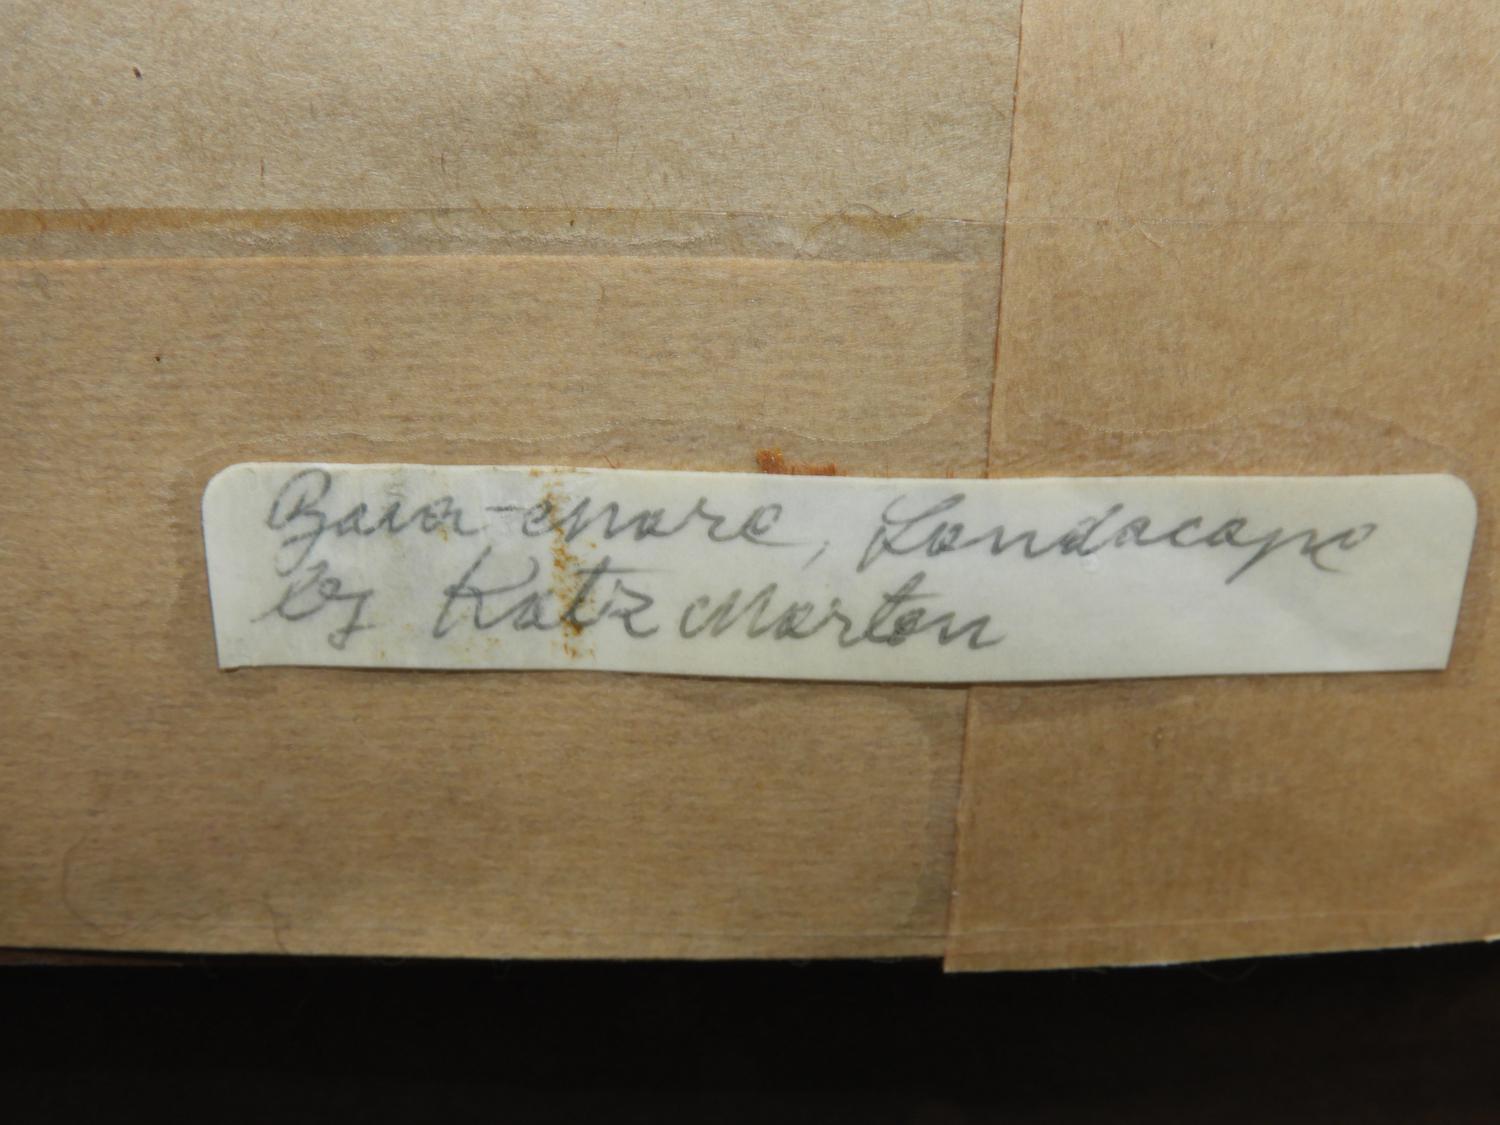 Baia-mare, Landscape
by Katz Marton